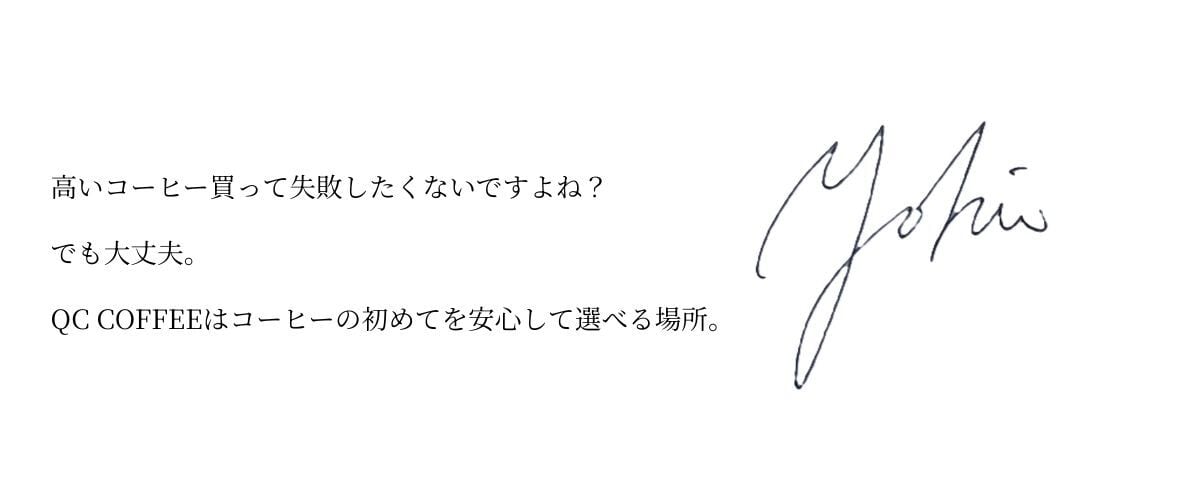 高いコーヒー買って失敗したくないですよね？
でも大丈夫。
QC COFFEEはコーヒーの初めてを安心して選べる場所。